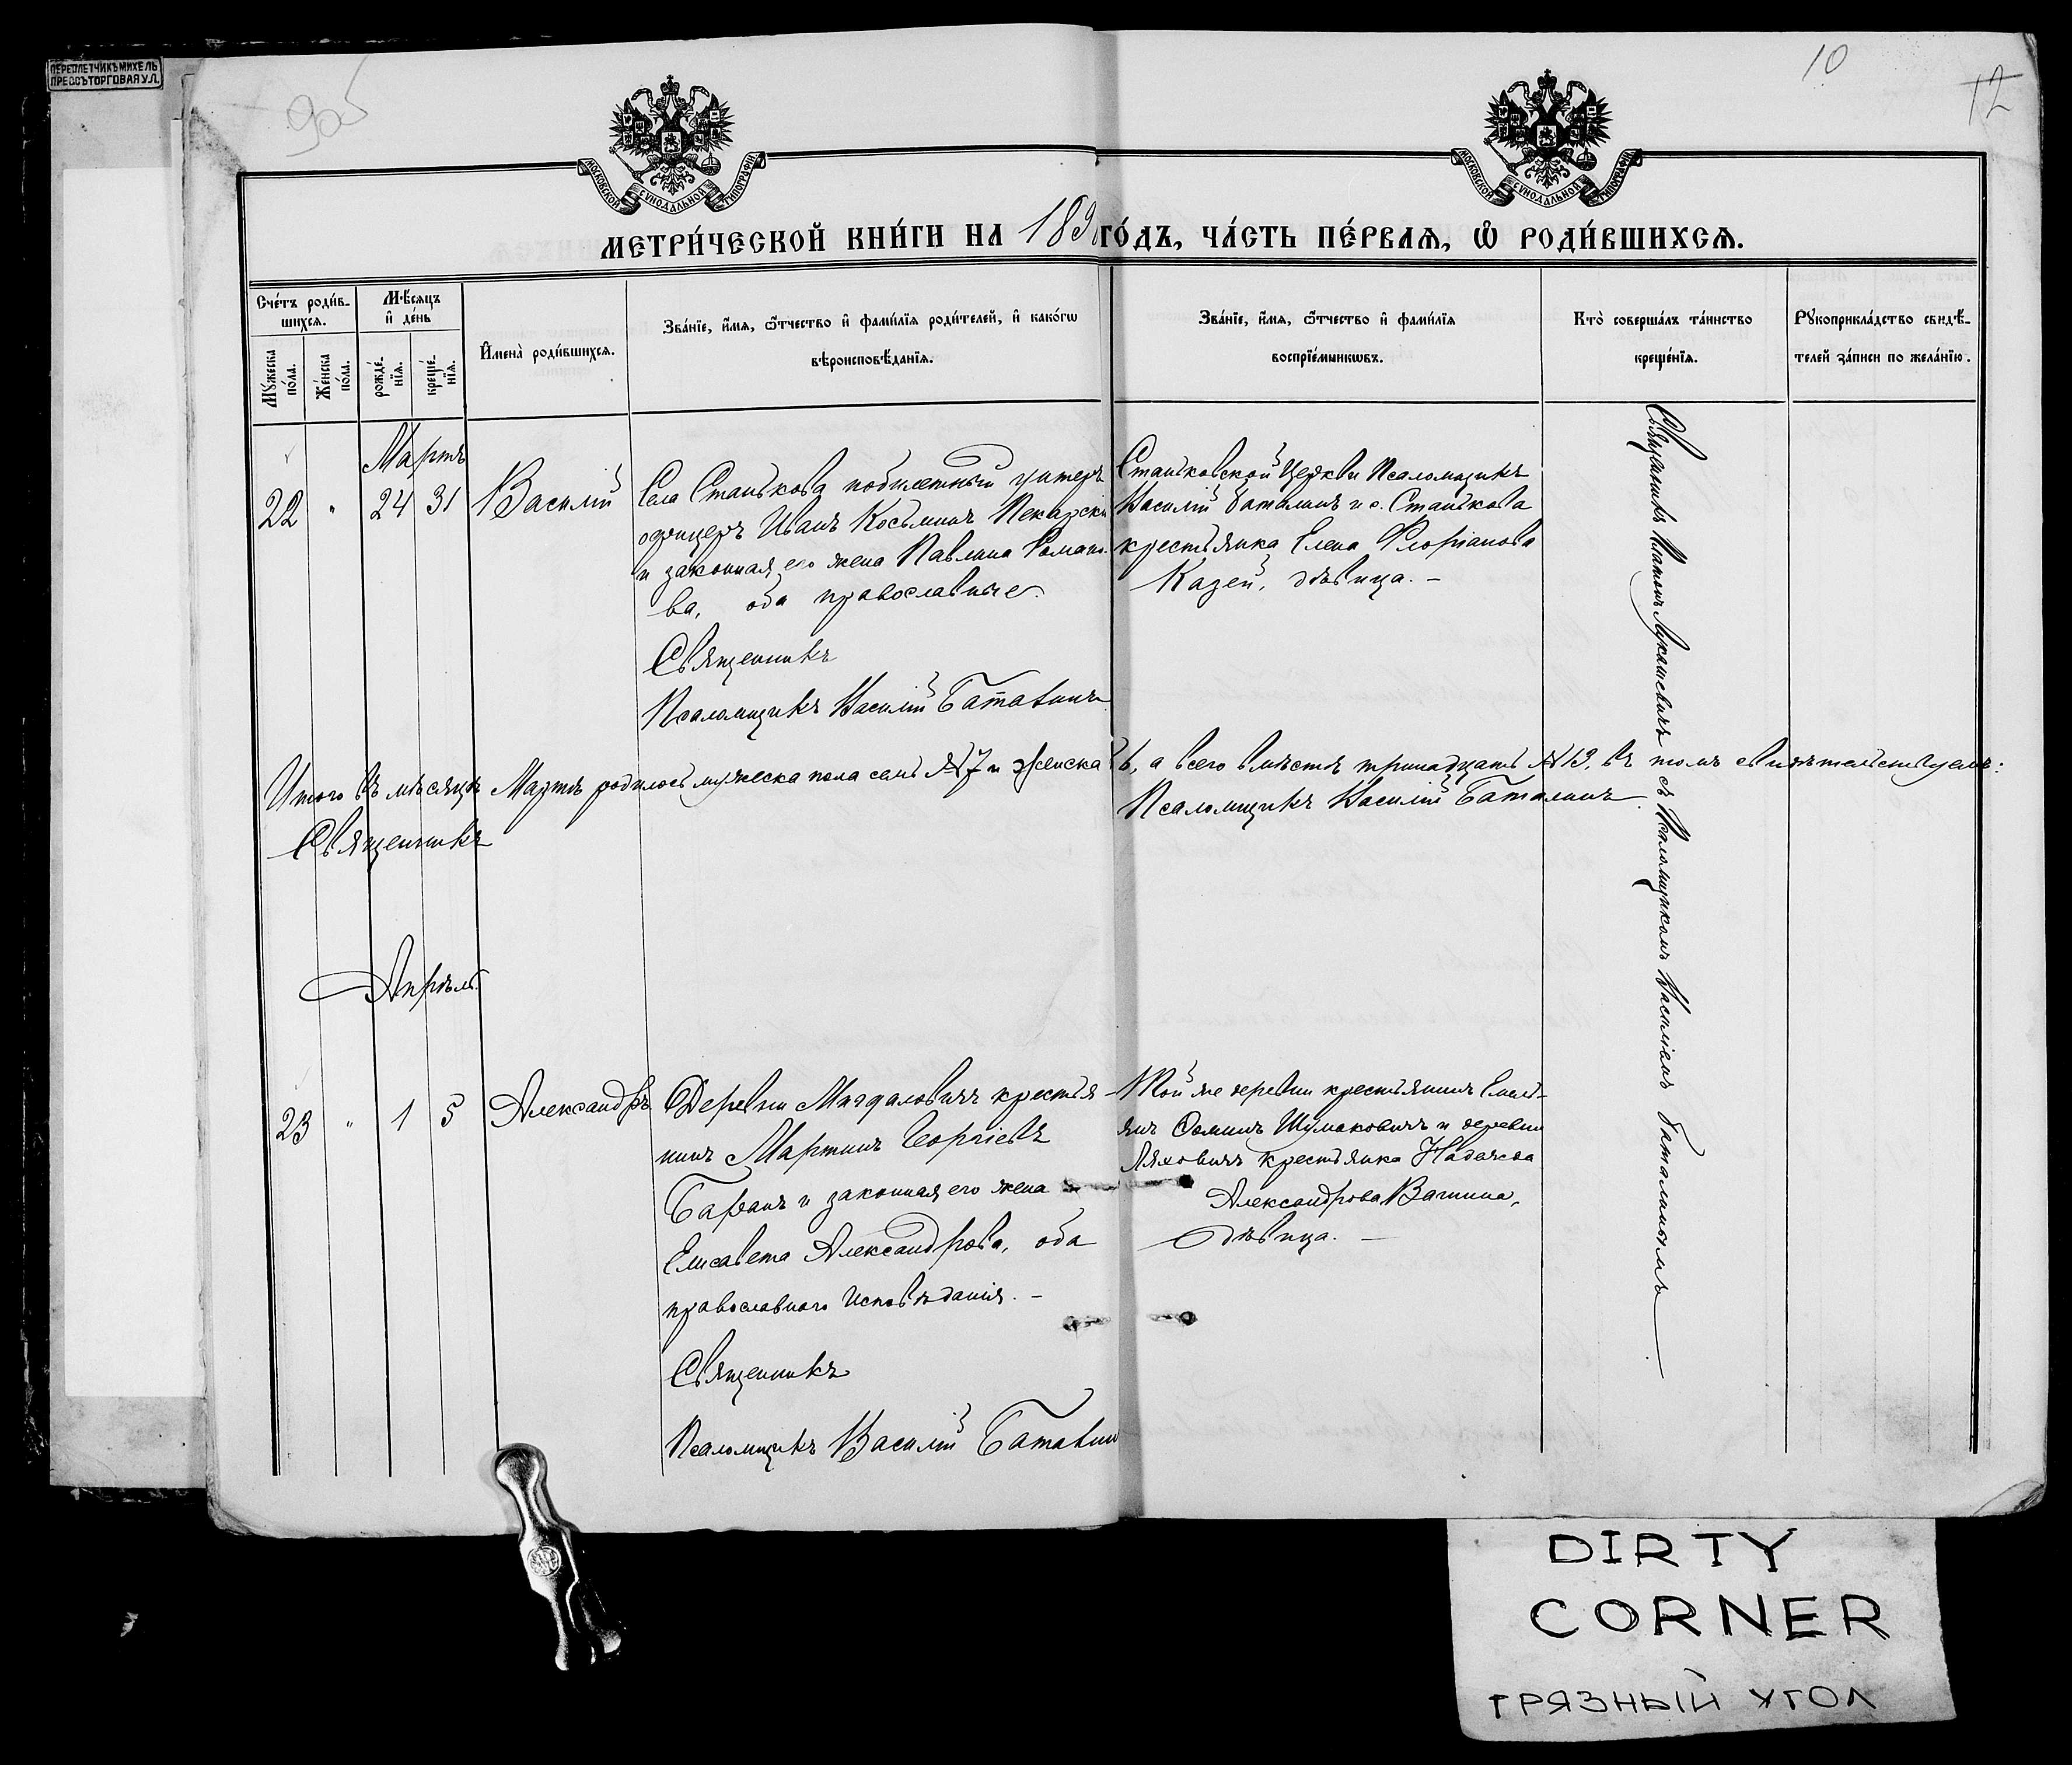 ПЕРЕПЛЕТЧИКЪ МИХЕЛЬ
ПРЕССЪ ТОРГОВАЯ УЛ.
10
12
МОСКОВСКОЙ СѴНОДАЛЬНОЙ ТИПОГРАФІИ
МОСКОВСКОЙ СѴНОДАЛЬНОЙ ТИПОГРАФІИ
МЕТРИ́ЧЕСКОЙ КНИ́ГИ НА 189 ГО́ДЪ, ЧА́СТЬ ПЕ́РВАѦ, Ѽ РОДИ́ВШИХСѦ.
Сче́тъ роди́в-
шихсѧ.
Мꙋ́жеска по́ла.
Же́нска по́ла.
Мѣ́сѧцъ
и҆ де́нь
рожде́-
нїѧ.
креще́-
нїѧ.
И҆мена̀ роди́вшихсѧ.
Зва́нїе, и҆́мѧ, ѻ҆́тчество и҆ фами́лїѧ роди́телей, и҆ како́гѡ
вѣроисповѣ́данїѧ.
Зва́нїе, и҆́мѧ, ѻ҆́тчество и҆ фами́лїѧ
воспрїе́мникѡвъ.
Кто̀ соверша́лъ та́инство
креще́нїѧ.
Рꙋкоприкла́дство свидѣ́-
телей за́писи по жела́нїю.
Мартъ
22 " 24 31 Василій
Села Станькова побилетный унтеръ
офицеръ Иванъ Косьминъ Пекарскі
и законная его жена Павлина Романо-
ва, оба православные.
Священникъ
Псаломщикъ Василій Баталинъ
Станьковской Церкви Псаломщикъ
Василій Баталинъ и с. Станькова
крестьянка Елена Флоріанова
Казей, дѣвица. –
Священникъ Платонъ Лукашевичъ съ Псаломщикомъ Василіемъ Баталинымъ
Итого въ мѣсяцѣ Мартѣ родилось мужеска пола семь №7 и женска 6, а всего вмѣстѣ тринадцать №13, въ томъ свидѣтельствуемъ:
Священникъ
Псаломщикъ Василій Баталинъ.
Апрѣль.
23 " 1 5 Александръ
Деревни Магдаловичъ крестья-
нинъ Мартинъ Георгіевъ
Баранъ и законная его жена
Елисавета Александрова, оба
православнаго исповѣданія. –
Священникъ
Псаломщикъ Василій Баталин
Той же деревни крестьянинъ Емель-
янъ Ѳоминъ Шумаковичъ и деревни
Ляховичъ крестьянка Надежда
Александрова Вашина,
дѣвица. –
DIRTY
CORNER
ГРЯЗНЫЙ УГОЛ